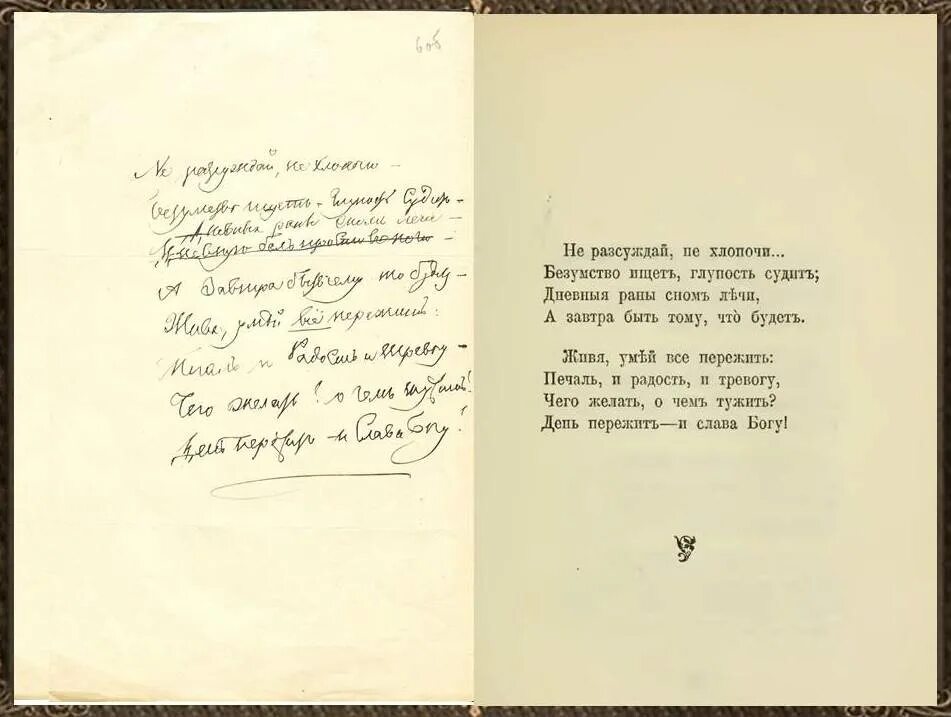 605
Не разсуждай, не хлопочи —
Безумство ищетъ — Глупость Судитъ —
Дневныя раны сномъ лечи —
А Завтра быть чему то будетъ —
Живя, умѣй всё пережить:
Печаль и Радость и Тревогу —
Чего желать? о чемъ тужить?
День пережитъ — и Слава Богу!
Не разсуждай, не хлопочи...
Безумство ищетъ, глупость судитъ;
Дневныя раны сномъ лѣчи,
А завтра быть тому, что́ будетъ.
Живя, умѣй все пережить:
Печаль, и радость, и тревогу,
Чего желать, о чемъ тужить?
День пережитъ—и слава Богу!